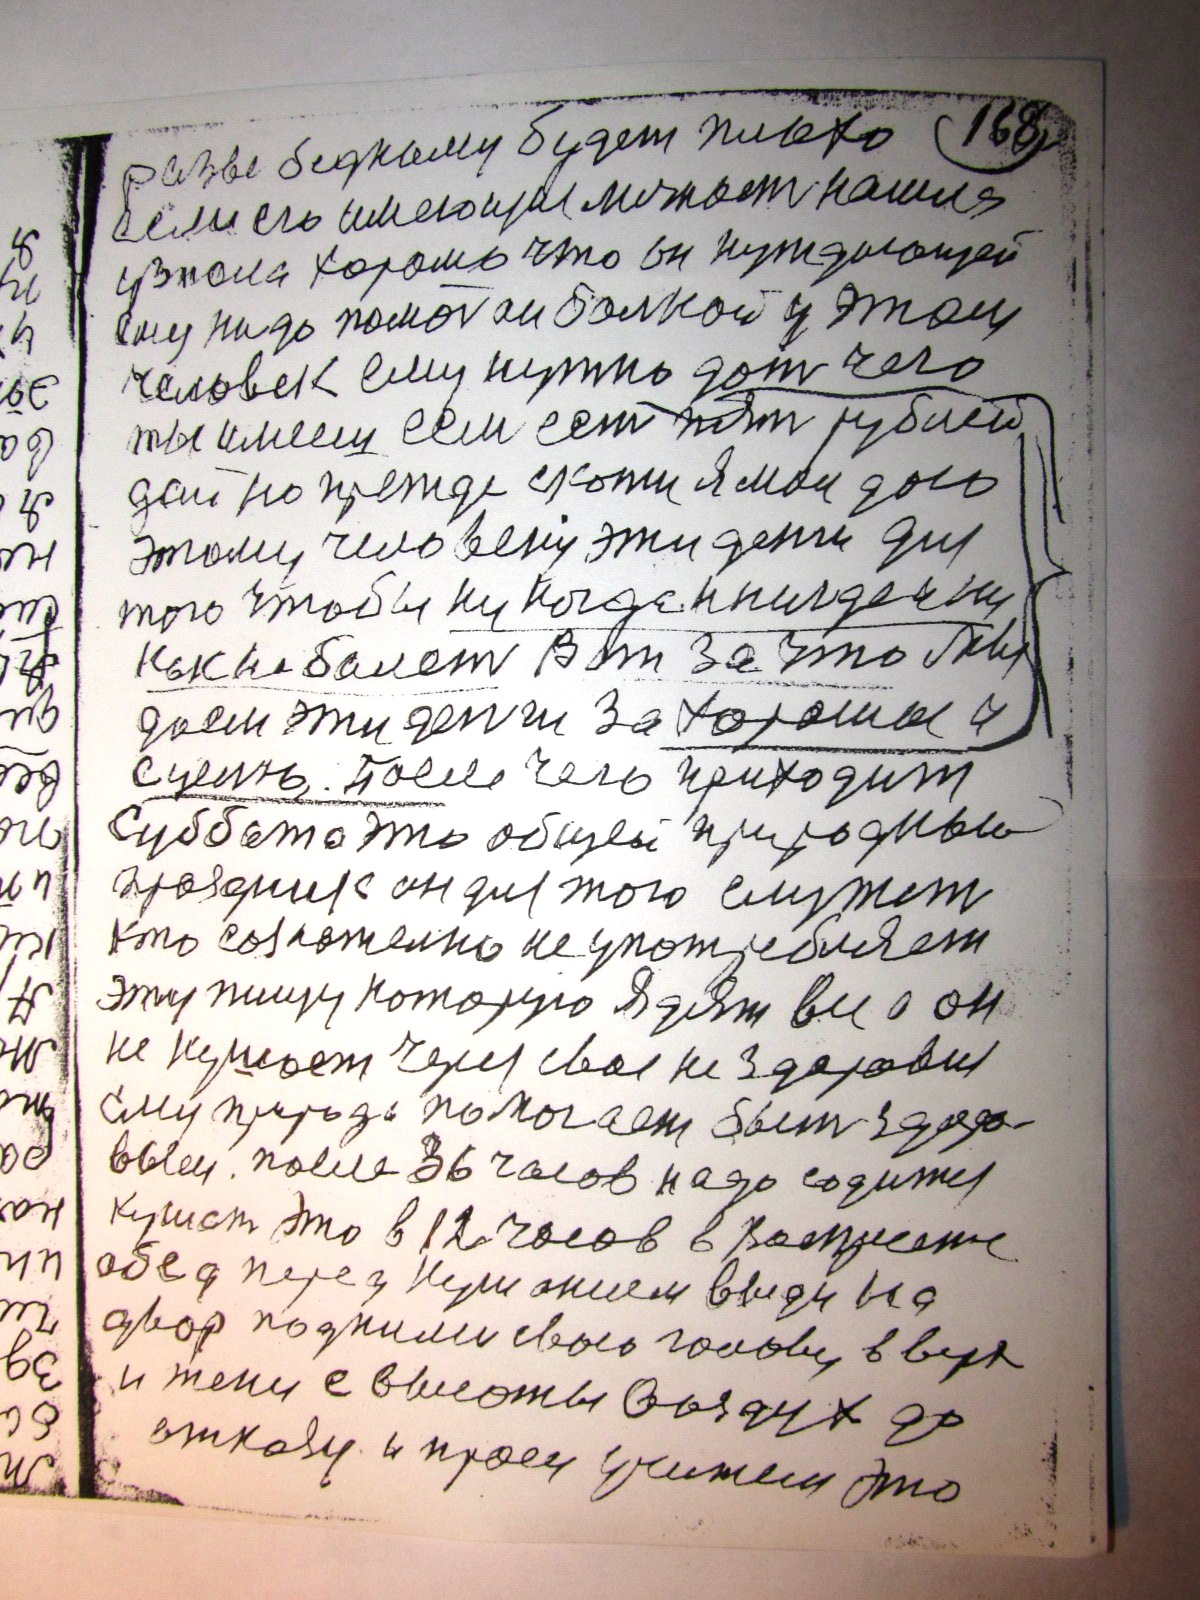 168
разве бедному будет плохо
если его имеющие личност нашла
узнала хорошо что он нуждающей
ему надо помоч он болной у этом
человек ему нужно дат чего
ты имееш если ест пят рублей
дай но прежде скажи я мол даю
этому человеку эти денги для
того чтобы
как не болет Вот за что мы
даем эти денги За хорошые и
После чего приходит
Суббота это общей природный
праздник он для того служет
кто сознателно не употребляет
эту пищу которую ядят все а он
не кушает через свое не здоровия
ему природа помогает быт здоро-
вым. после 36 часов надо садится
кушат это в 12 часов в Воскресение
обед перед кушанием выди на
двор подними свою голову в верх
и тени с высоты Воздух до
отказу и проси учителя это